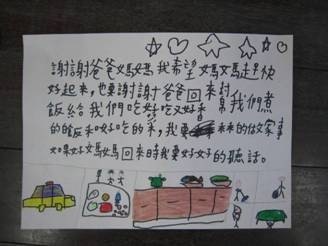 謝謝爸爸媽媽我希望媽媽趕快
好起來，也要謝謝爸爸回來村幫我們煮
飯給我們吃好吃又好香
的飯和好吃的米，我要乖乖的做家事
如果好媽媽回來時我要好好的聽話。